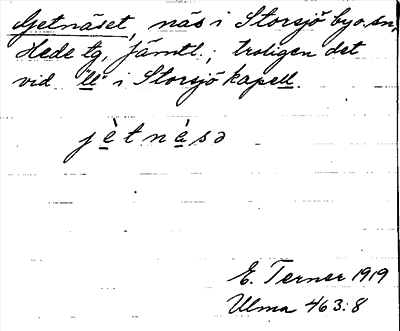 Getnäset, näs i Storsjö by o. sn,
Hede tg, Jämtl.; troligen det
vid "ll" i Storsjö kapell.
jètnàsə
E. Terner 1919
Ulma 463:8